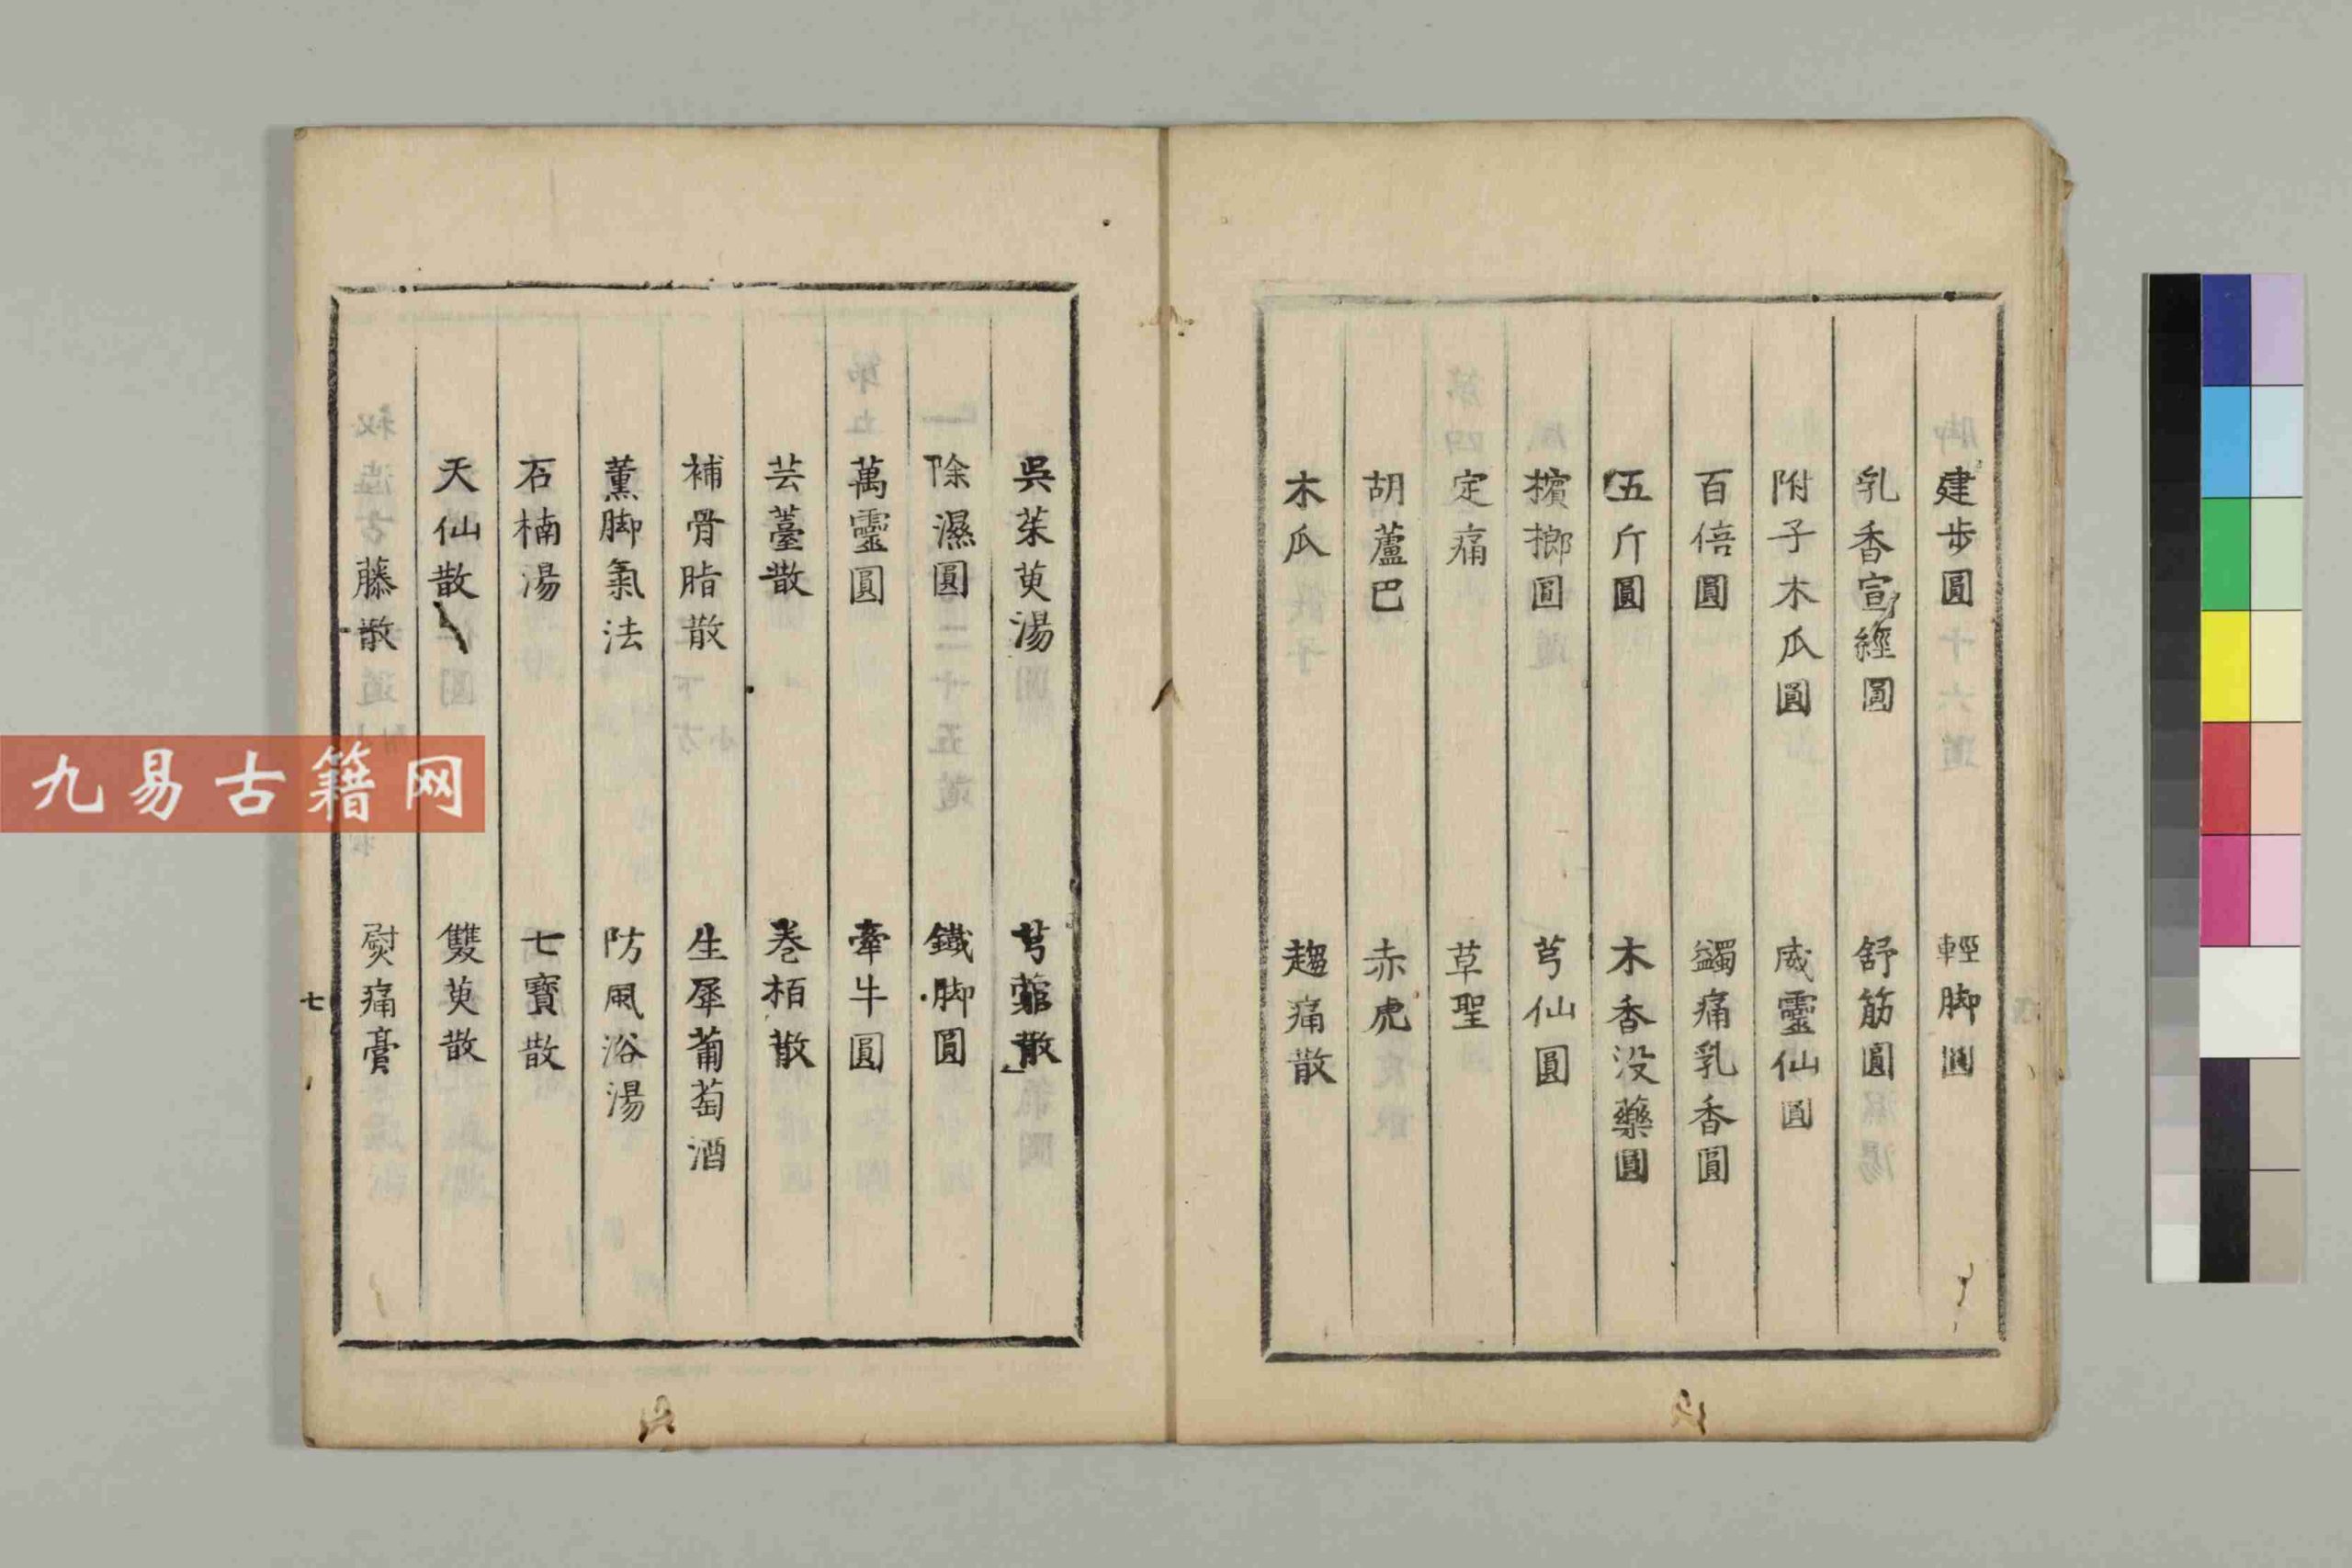 建步圓 輕脚圓
乳香宣經圓 舒筋圓
附子木瓜圓 威靈仙圓
百倍圓 蠲痛乳香圓
五斤圓 木香没藥圓
檳榔圓 芎仙圓
定痛 草聖
胡蘆巴 赤虎
木瓜 趨痛散
吳茱萸湯 芎散
除濕圓 鐵脚圓
萬靈圓 牽牛圓
芸薹散 巻栢散
補骨脂散 生犀葡萄酒
薰脚氣法 防風浴湯
石楠湯 七寶散
天仙散 雙萸散
藤散 熨痛膏
七
九易古籍网